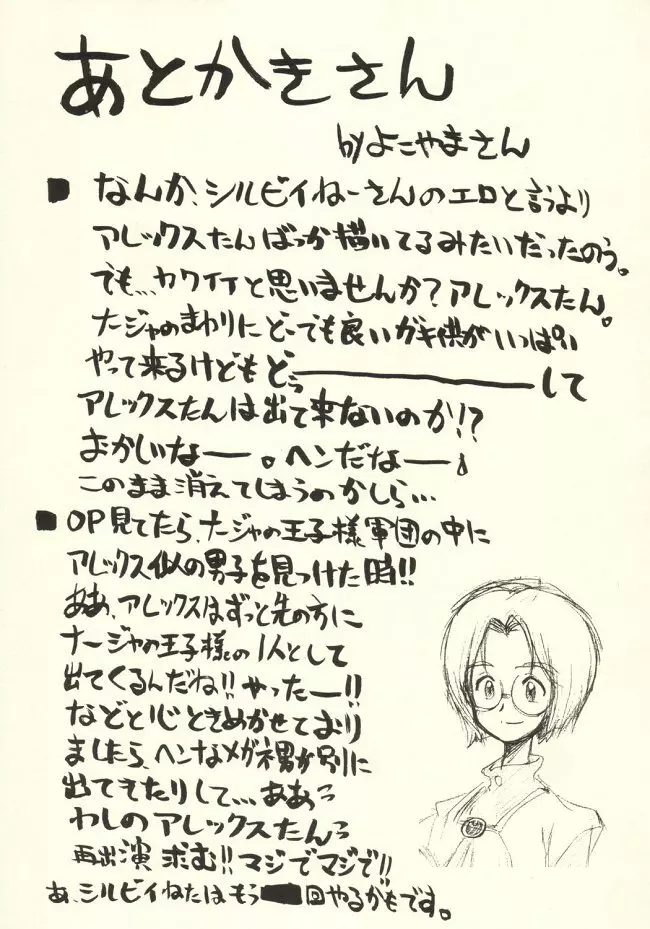 あとかきさん
byよこやまさん
■ なんか、シルビイねーさんのエロと言うより
アレックスたんばっか描いてるみたいだったのう。
でも…カワイイと思いませんか?アレックスたん。
ナージャのまわりにどーでも良いガキ供がいっぱい
やって来るけどもどぅーーーーーして
アレックスたんは出て来ないのか!?
おかしいなー。ヘンだなー。
このまま消えてしまうのかしら…
■ OP見てたら、ナージャの王子様軍団の中に
アレックス似の男子を見つけた時!!
ああ、アレックスはずっと先の方に
ナージャの王子様の1人として
出てくるんだね!!やったー!!
などと心ときめかせており
ましたら、ヘンなメガネ男が別に
出てきたりして…ああっ
わしのアレックスたんっ
再出演求む!!マジでマジで!!
あ、シルビイねたはもう回やるかもです。